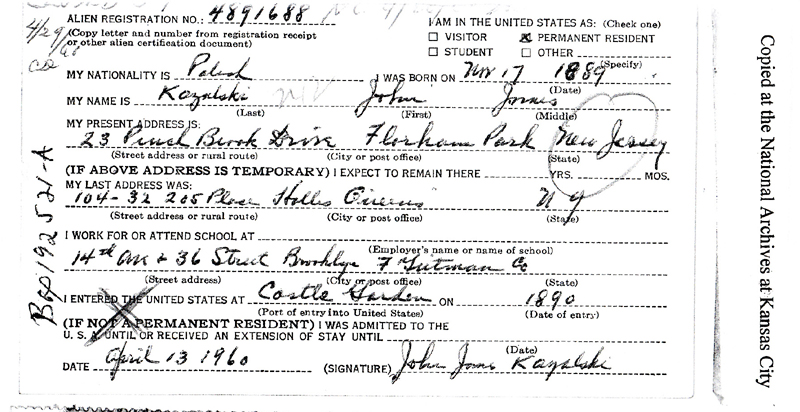 ALIEN REGISTRATION NO.: 4891688
(Copy letter and number from registration receipt
or other alien certification document)
I AM IN THE UNITED STATES AS: (Check one)
☐ VISITOR ☒ PERMANENT RESIDENT
☐ STUDENT ☐ OTHER
(Specify)
MY NATIONALITY IS Polish I WAS BORN ON Nov 17 1889
(Date)
MY NAME IS Kozalski John James
(Last) (First) (Middle)
MY PRESENT ADDRESS IS:
23 Brook Drive Florham Park New Jersey
(Street address or rural route) (City or post office) (State)
(IF ABOVE ADDRESS IS TEMPORARY) I EXPECT TO REMAIN THERE YRS. MOS.
MY LAST ADDRESS WAS:
104-32 205 Place Hollis Queens N Y
(Street address or rural route) (City or post office) (State)
I WORK FOR OR ATTEND SCHOOL AT
(Employer's name or name of school)
14th Ave & 36 Street Brooklyn F Gutman Co
(Street address) (City or post office) (State)
I ENTERED THE UNITED STATES AT Castle Garden ON 1890
(Port of entry into United States) (Date of entry)
(IF NOT A PERMANENT RESIDENT) I WAS ADMITTED TO THE
U. S. UNTIL OR RECEIVED AN EXTENSION OF STAY UNTIL
(Date)
DATE April 13 1960 (SIGNATURE) John James Kozalski
Copied at the National Archives at Kansas City